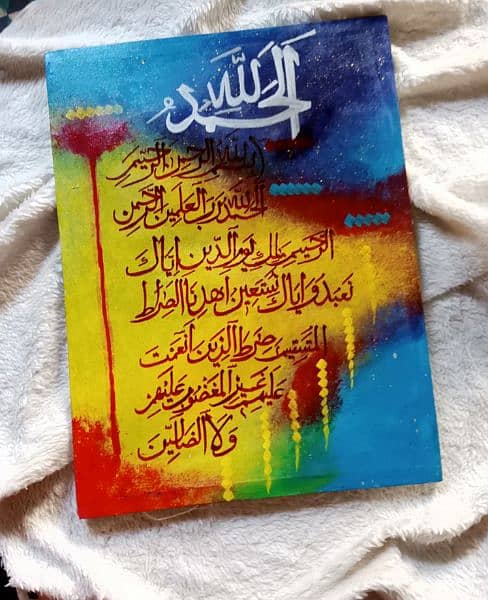 الحمدلله
بسم الله الرحمن الرحيم
الحمد لله رب العلمين الرحمن
الرحيم ملك يوم الدين اياك
نعبد و اياك نستعين اهدنا الصراط
المستقيم صراط الذين انعمت
عليهم غير المغضوب عليهم
ولا الضالين